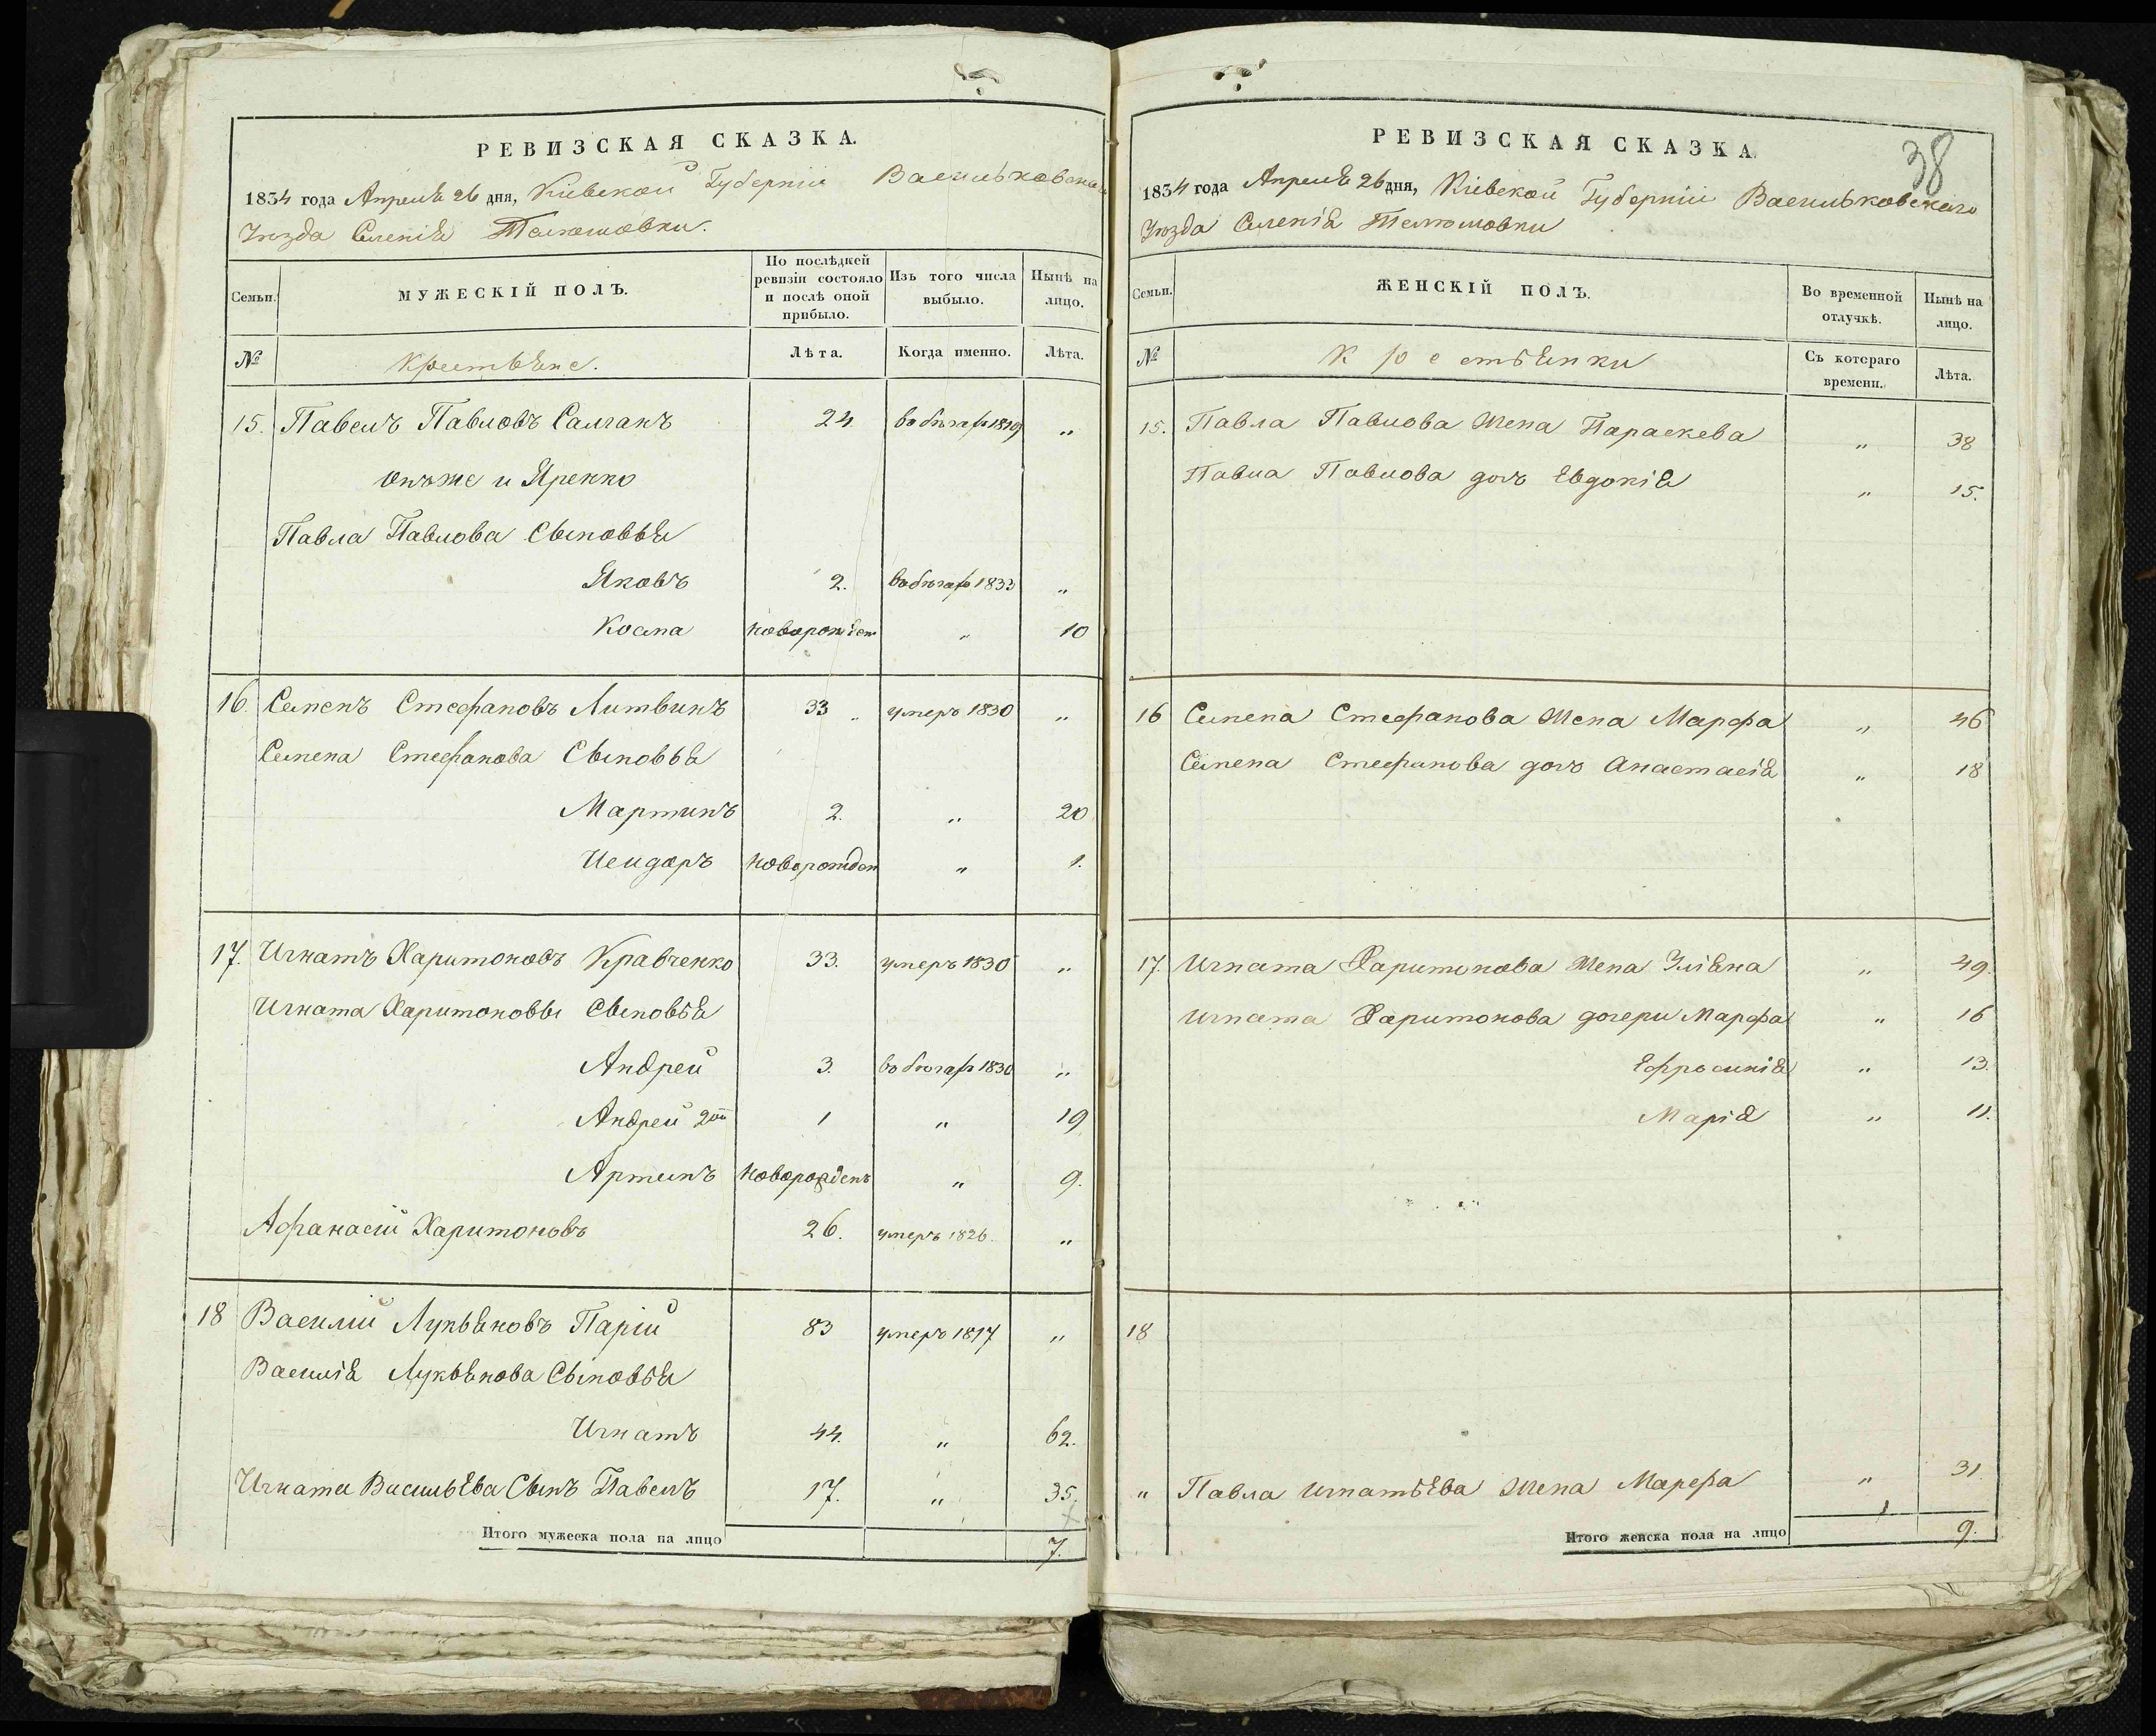 РЕВИЗСКАЯ СКАЗКА.
1834 года Апреля 26 дня, Кіевской Губерніи Васильковскаго
Уѣзда Селенія
МУЖЕСКІЙ ПОЛЪ.
Семьи.
По послѣдней ревизіи состояло и послѣ оной прибыло.
Изъ того числа выбыло.
Нынѣ на лицо.
№ Крестьяне. Лѣта. Когда именно. Лѣта.
15. Павелъ Павловъ Салганъ 24 въ бѣгахъ 1829 „
онъже и Яренко
Павла Павлова Сыновья
Яковъ 2. въ бѣгахъ 1833 „
Косма новорожден „ 10
16. Семенъ Стефановъ Литвинъ 33 „ умеръ 1830 „
Семена Стефанова Сыновья
Мартинъ 2. „ 20
Исидоръ новорожден „ 1.
17. Игнатъ Харитоновъ Кравченко 33. умеръ 1830 „
Игната Харитоновы Сыновья
Андрей 3. въ бѣгахъ 1830 „
Андрей 2ой 1 „ 19
Артинъ новорожденъ „ 9.
Афанасій Харитоновъ 26. умеръ 1826 „
18 Василій Лукьяновъ Парій 83 умеръ 1817 „
Василія Лукьянова Сыновья
Игнатъ 44. „ 62.
Игната Васильева Сынъ Павелъ 17. „ 35.
Итого мужеска пола на лицо 7.
РЕВИЗСКАЯ СКАЗКА.
38
1834 года Апреля 26 дня, Кіевской Губерніи Васильковскаго
Уѣзда Селенія
Семьи.
ЖЕНСКІЙ ПОЛЪ.
Во временной отлучкѣ.
Нынѣ на лицо.
№ Крестьянки Съ котораго времени. Лѣта.
15. Павла Павлова Жена Параскева „ 38
Павла Павлова дочь Евдокія „ 15.
16 Семена Стефанова Жена Марфа „ 46
Семена Стефанова дочь Анастасія „ 18
17. Игната Харитонова Жена Уліяна „ 49.
Игната Харитонова дочери Марфа „ 16
Ефросинія „ 13.
Марія „ 11.
18
„ Павла Игнатьева Жена Марфа „ 31.
Итого женска пола на лицо 9.